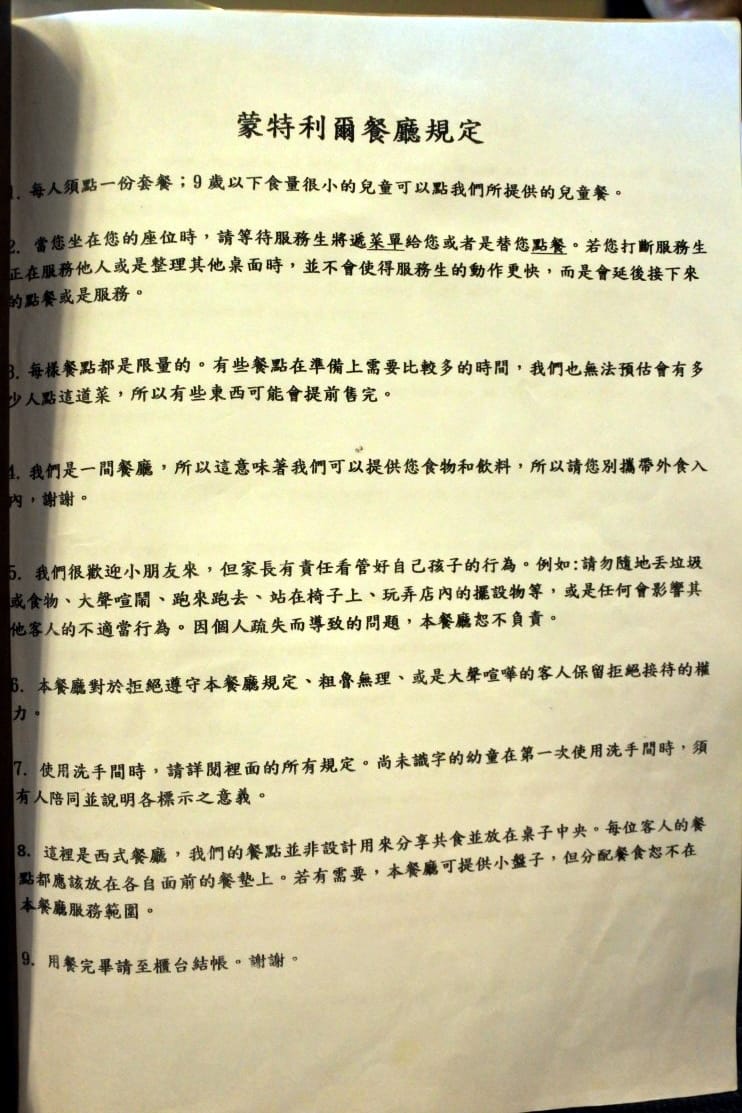 蒙特利爾餐廳規定
1. 每人須點一份套餐；9歲以下食量很小的兒童可以點我們所提供的兒童餐。
2. 當您坐在您的座位時，請等待服務生將遞菜單給您或者是替您點餐。若您打斷服務生
正在服務他人或是整理其他桌面時，並不會使得服務生的動作更快，而是會延後接下來
的點餐或是服務。
3. 每樣餐點都是限量的。有些餐點在準備上需要比較多的時間，我們也無法預估會有多
少人點這道菜，所以有些東西可能會提前售完。
4. 我們是一間餐廳，所以這意味著我們可以提供您食物和飲料，所以請您別攜帶外食入
內，謝謝。
5. 我們很歡迎小朋友來，但家長有責任看管好自己孩子的行為。例如:請勿隨地丟垃圾
或食物、大聲喧鬧、跑來跑去、站在椅子上、玩弄店內的擺設物等，或是任何會影響其
他客人的不適當行為。因個人疏失而導致的問題，本餐廳恕不負責。
6. 本餐廳對於拒絕遵守本餐廳規定、粗魯無理、或是大聲喧嘩的客人保留拒絕接待的權
力。
7. 使用洗手間時，請詳閱裡面的所有規定。尚未識字的幼童在第一次使用洗手間時，須
有人陪同並說明各標示之意義。
8. 這裡是西式餐廳，我們的餐點並非設計用來分享共食並放在桌子中央。每位客人的餐
點都應該放在各自面前的餐墊上。若有需要，本餐廳可提供小盤子，但分配餐食恕不在
本餐廳服務範圍。
9. 用餐完畢請至櫃台結帳。謝謝。